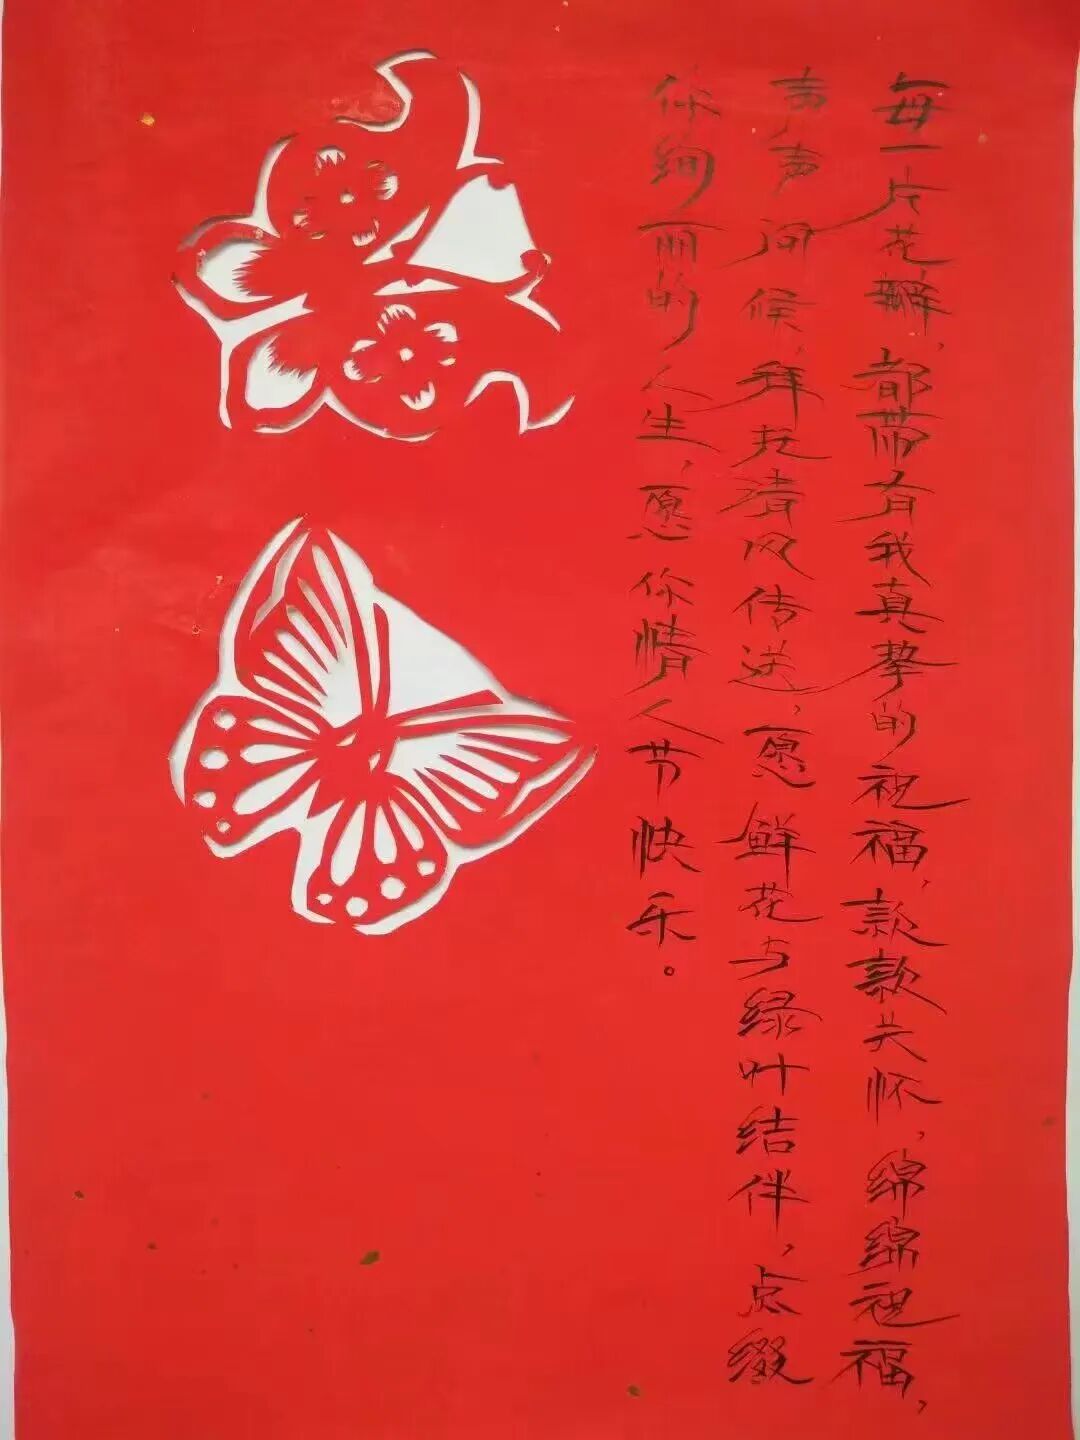 每一片花瓣，都带有我真挚的祝福，款款关怀，绵绵祝福，
声声问候，拜托清风传送，愿鲜花与绿叶结伴，点缀
你绚丽的人生，愿你情人节快乐。